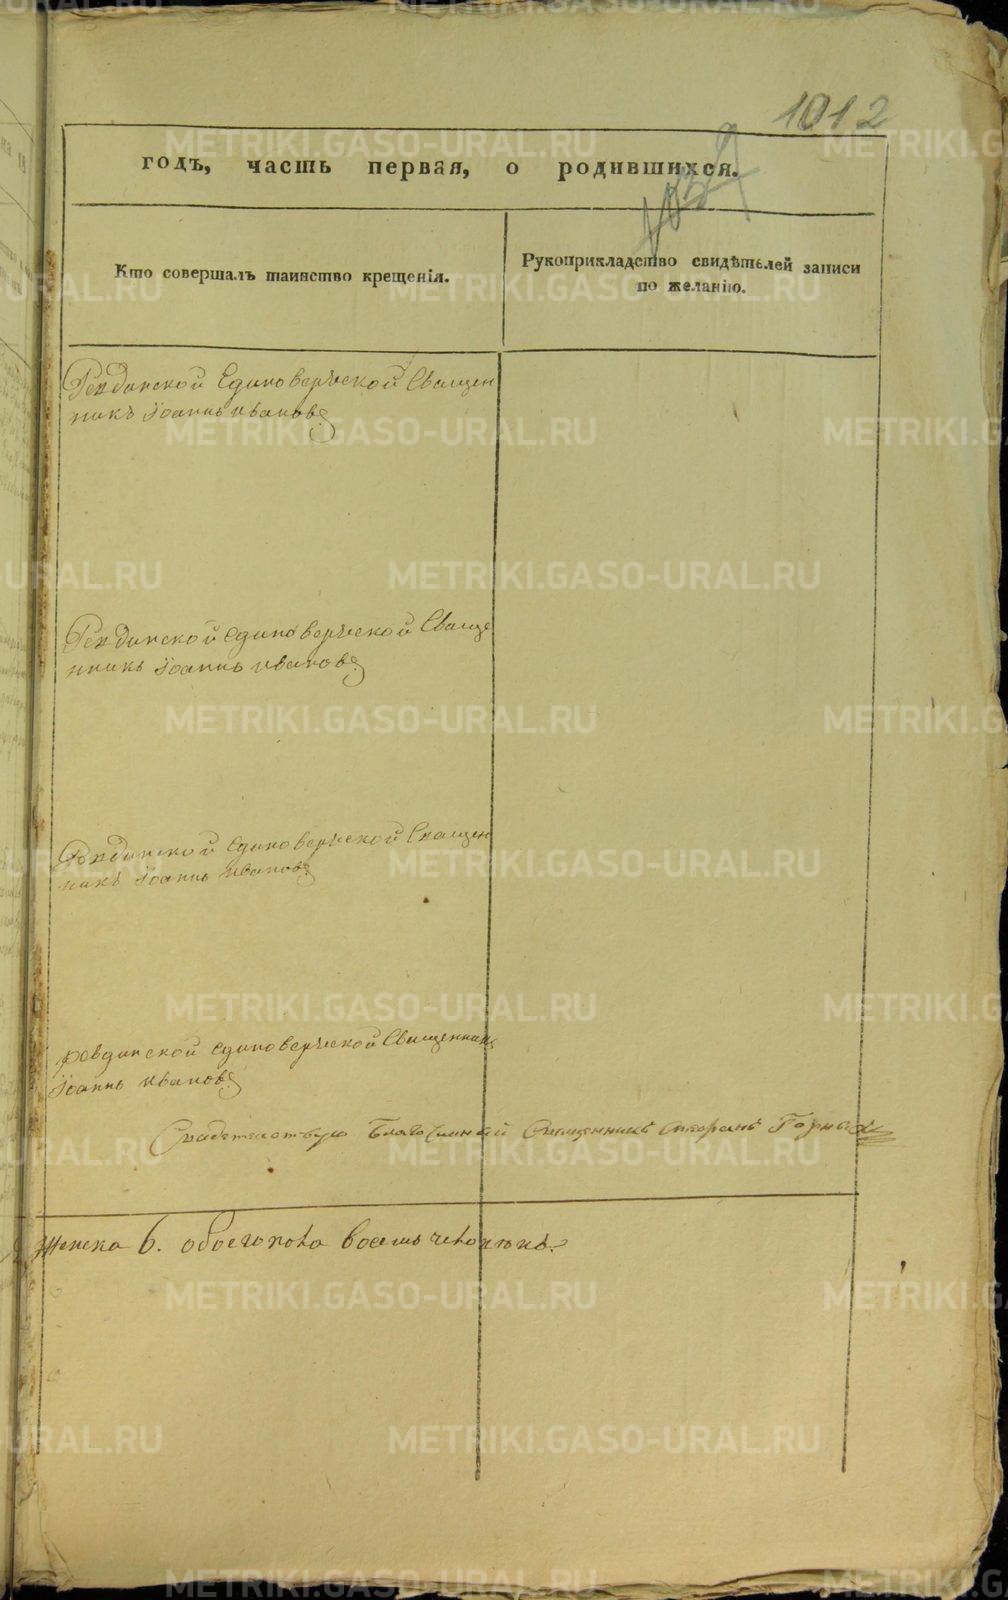 1012
годъ, часть первая, о родившихся.
Кто совершалъ таинство крещенія.
Рукоприкладство свидѣтелей записи
по желанію.
Ревдинской Единоверческой Священ
никъ Іоаннъ Ивановъ
Ревдинской Единоверческой Свяще
нникъ Іоаннъ Ивановъ
Ревдинской Единоверческой Священ
никъ Іоаннъ Ивановъ
Ревдинской Единоверческой Священникъ
Іоаннъ Ивановъ
Свидетельствую Благочинный Священникъ Стефанъ Горныхъ
женска 6. обоего пола восемь человѣкъ.
METRIKI.GASO-URAL.RU